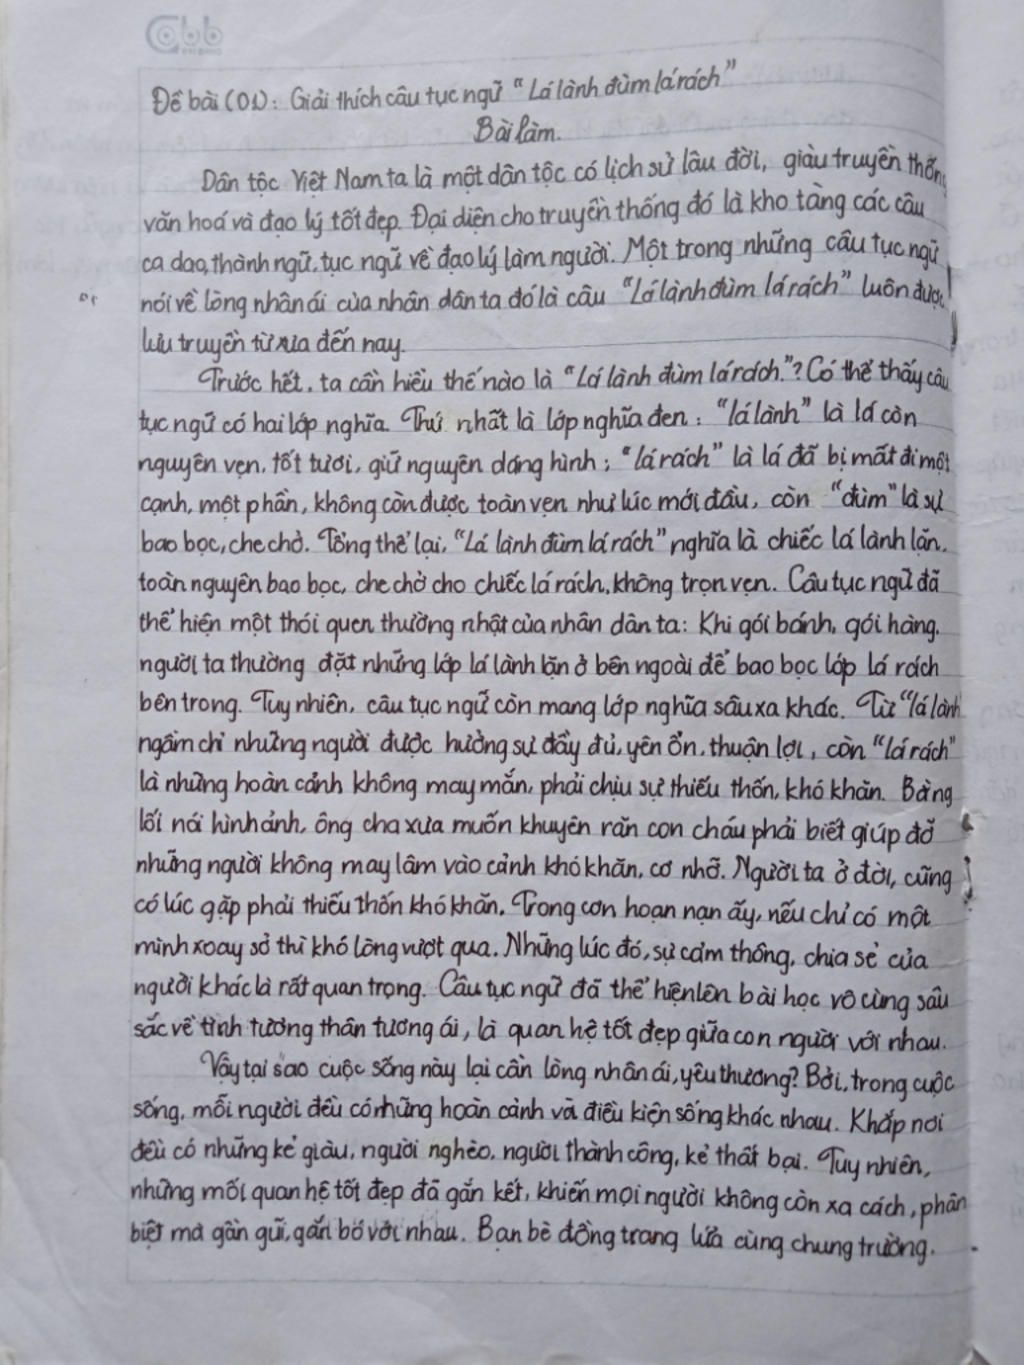 Đề bài (01): Giải thích câu tục ngữ "Lá lành đùm lá rách"
Bài làm.
Dân tộc Việt Nam ta là một dân tộc có lịch sử lâu đời, giàu truyền thống
văn hoá và đạo lý tốt đẹp. Đại diện cho truyền thống đó là kho tàng các câu
ca dao, thành ngữ, tục ngữ về đạo lý làm người. Một trong những câu tục ngữ
nói về lòng nhân ái của nhân dân ta đó là câu "Lá lành đùm lá rách" luôn được
lưu truyền từ xưa đến nay.
Trước hết, ta cần hiểu thế nào là "Lá lành đùm lá rách."? Có thể thấy câu
tục ngữ có hai lớp nghĩa. Thứ nhất là lớp nghĩa đen: "lá lành" là lá còn
nguyên vẹn, tốt tươi, giữ nguyên dáng hình; "lá rách" là lá đã bị mất đi một
cạnh, một phần, không còn được toàn vẹn như lúc mới đầu, còn "đùm" là sự
bao bọc, che chở. Tổng thể lại, "Lá lành đùm lá rách" nghĩa là chiếc lá lành lặn,
toàn nguyên bao bọc, che chở cho chiếc lá rách, không trọn vẹn. Câu tục ngữ đã
thể hiện một thói quen thường nhật của nhân dân ta: Khi gói bánh, gói hàng,
người ta thường đặt những lớp lá lành lặn ở bên ngoài để bao bọc lớp lá rách
bên trong. Tuy nhiên, câu tục ngữ còn mang lớp nghĩa sâu xa khác. Từ "lá lành"
ngầm chỉ những người được hưởng sự đầy đủ, yên ổn, thuận lợi, còn "lá rách"
là những hoàn cảnh không may mắn, phải chịu sự thiếu thốn, khó khăn. Bằng
lối nói hình ảnh, ông cha xưa muốn khuyên răn con cháu phải biết giúp đỡ
những người không may lâm vào cảnh khó khăn, cơ nhỡ. Người ta ở đời, cũng
có lúc gặp phải thiếu thốn khó khăn. Trong cơn hoạn nạn ấy, nếu chỉ có một
mình xoay sở thì khó lòng vượt qua. Những lúc đó, sự cảm thông, chia sẻ của
người khác là rất quan trọng. Câu tục ngữ đã thể hiện lên bài học vô cùng sâu
sắc về tình tương thân tương ái, là quan hệ tốt đẹp giữa con người với nhau.
Vậy tại sao cuộc sống này lại cần lòng nhân ái, yêu thương? Bởi, trong cuộc
sống, mỗi người đều có những hoàn cảnh và điều kiện sống khác nhau. Khắp nơi
đều có những kẻ giàu, người nghèo, người thành công, kẻ thất bại. Tuy nhiên,
những mối quan hệ tốt đẹp đã gắn kết, khiến mọi người không còn xa cách, phân
biệt mà gần gũi, gắn bó với nhau. Bạn bè đồng trang lứa cùng chung trường,